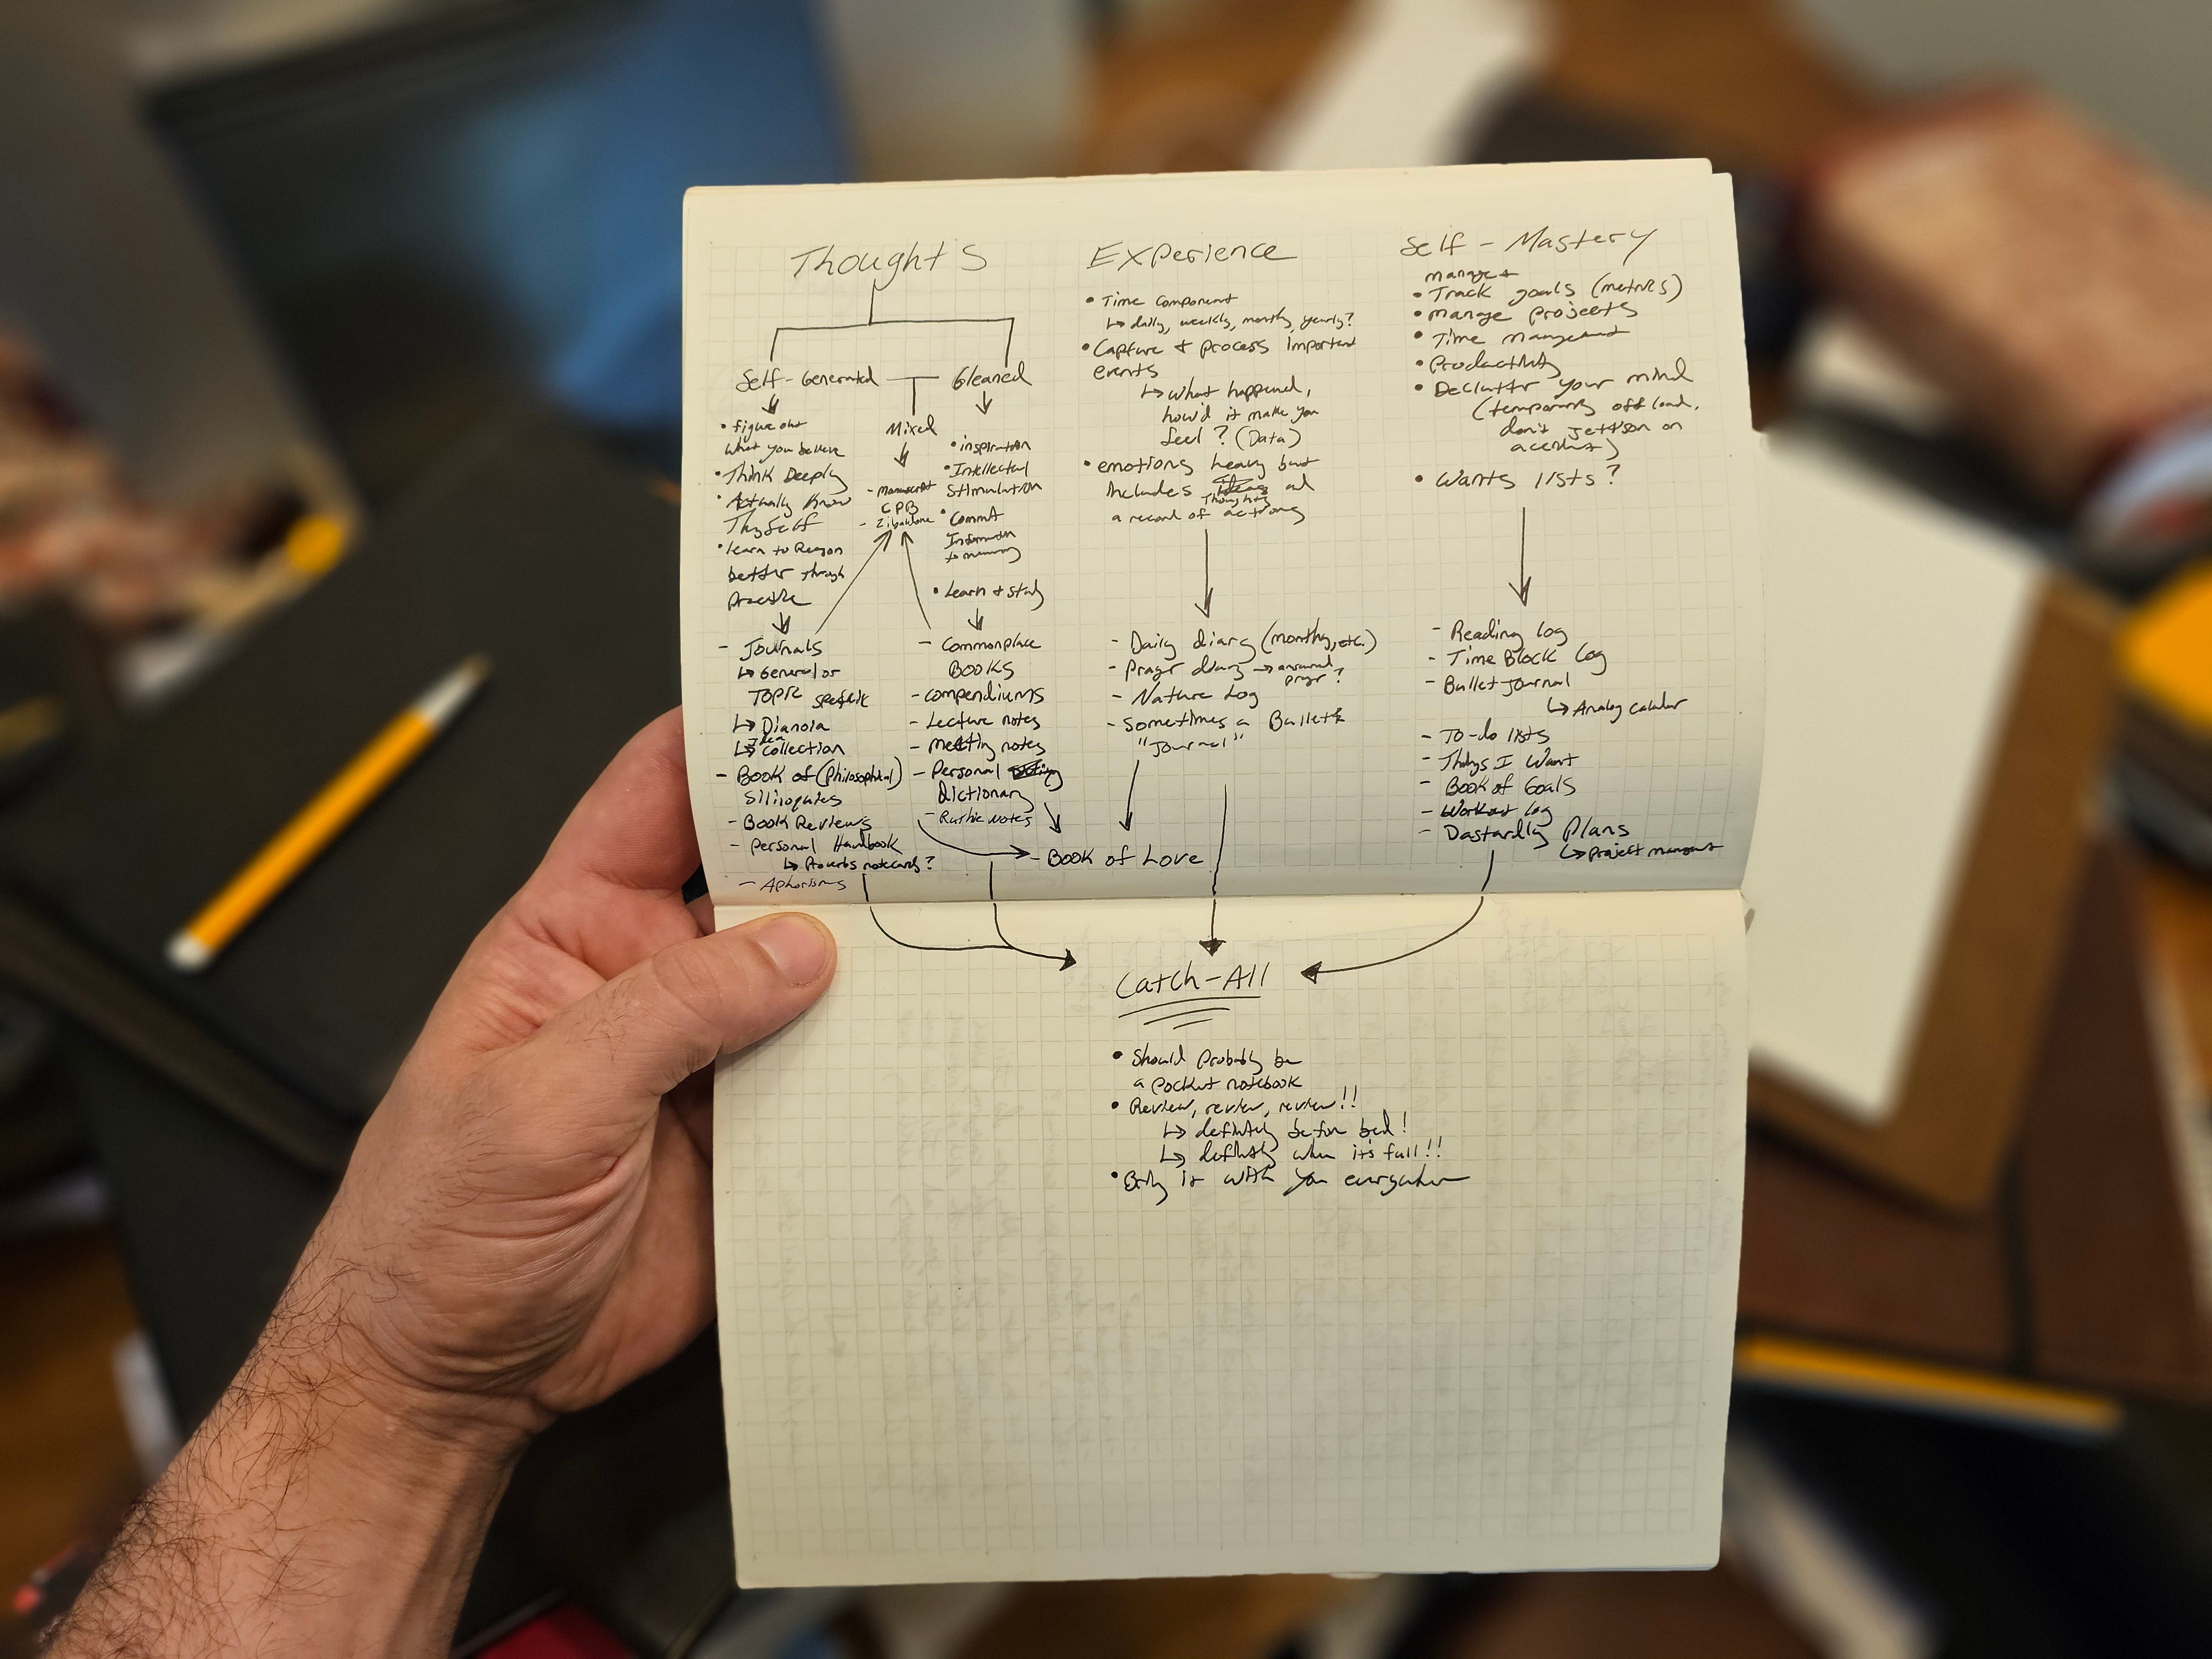 Thoughts
Self-Generated
Gleaned
Mixed
• figure out
what you believe
• Think Deeply
• Actually Know
Thyself
• learn to Reason
better through
practice
- Manuscript
CPB
- Zibaldone
• inspiration
• Intellectual
Stimulation
• Commit
Information
to memory
• Learn + study
- Journals
↳ General or
Topic specific
↳ Dianoia
↳ Idea
collection
- Book of (Philosophical)
Siliioquies
- Book Reviews
- Personal Handbook
↳ Proverbs notecards?
- Aphorisms
- Commonplace
Books
- Compendiums
- Lecture notes
- Meeting notes
- Personal
Dictionary
- Ruthie Notes
- Book of Love
Experience
• Time Component
↳ daily, weekly, monthly, yearly?
• Capture + process important
events
↳ what happened,
how'd it make you
feel? (Data)
• emotions heavy but
includes Ideas and
Thoughts
a record of actions
- Daily diary (monthly, etc.)
- Prayer diary → answered
prayer?
- Nature Log
- Sometimes a Bullet
"Journal"
Self-Mastery
manage +
• Track goals (metrics)
• Manage projects
• Time management
• Productivity
• Declutter your mind
(temporarily off load,
don't jettison on
accident)
• Wants lists?
- Reading log
- Time Block Log
- Bullet journal
↳ Analog calendar
- To-do lists
- Things I Want
- Book of Goals
- Workout log
- Dastardly Plans
↳ Project management
Catch-All
• Should probably be
a pocket notebook
• Review, review, review!!
↳ definitely before bed!
↳ definitely when it's full!!
• Bring it with you everywhere